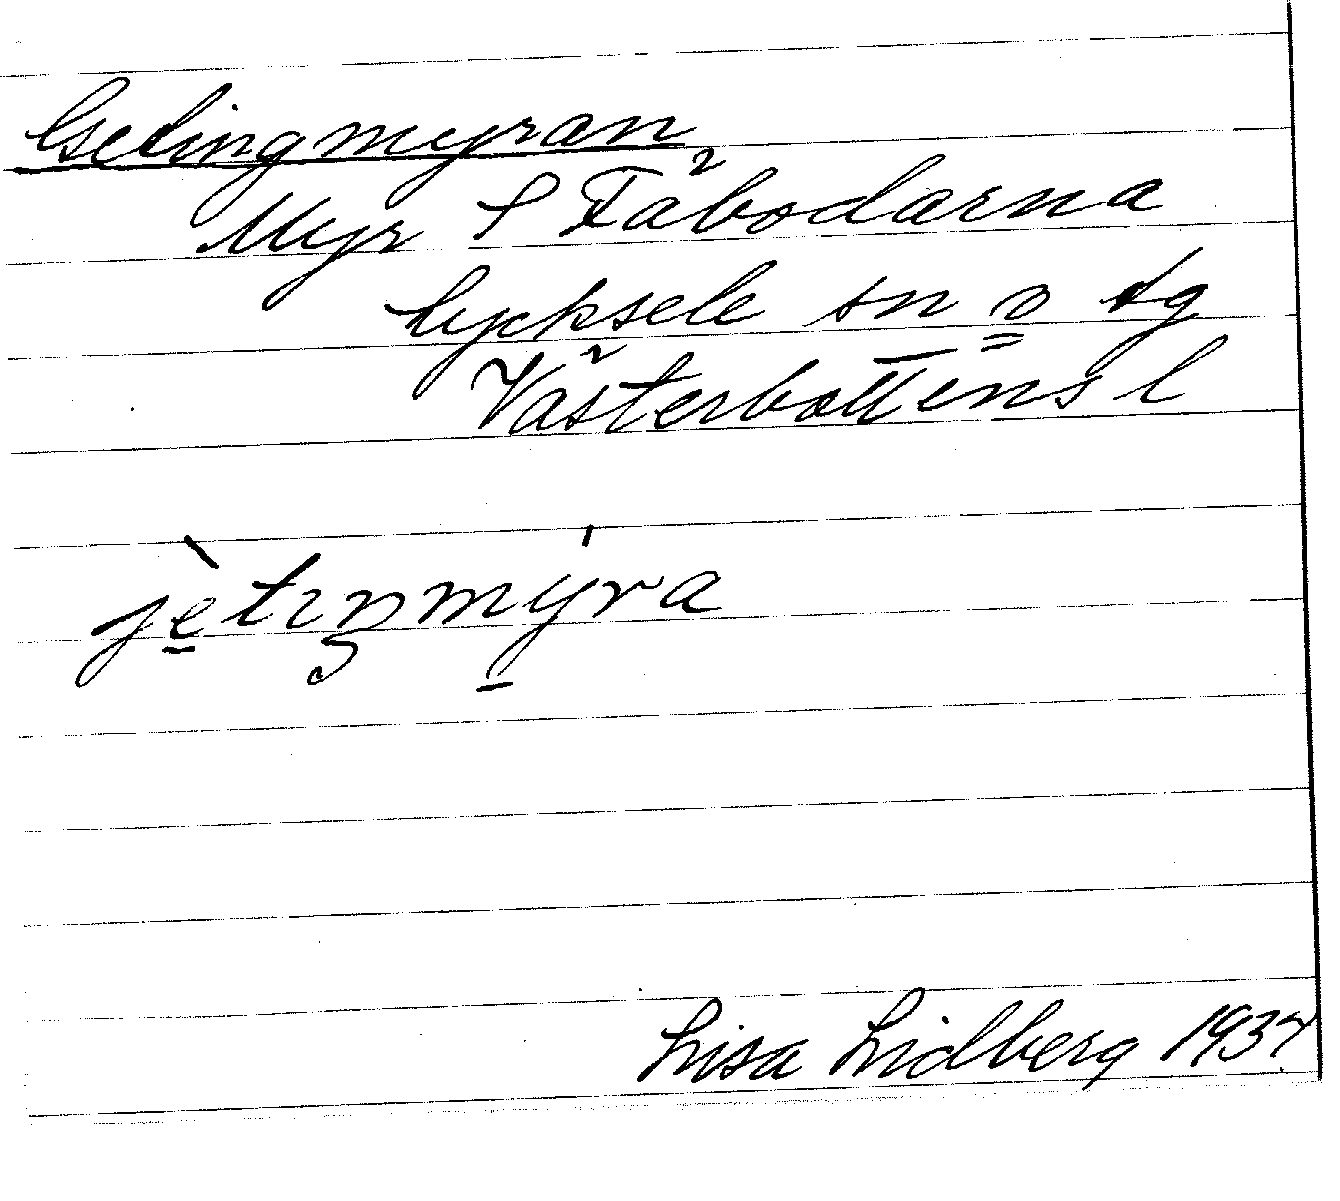 Getingmyran
Myr S Fäbodarna
Lycksele sn o tg
Västerbottens l
jètıŋmýra
Lisa Lidberg 1937